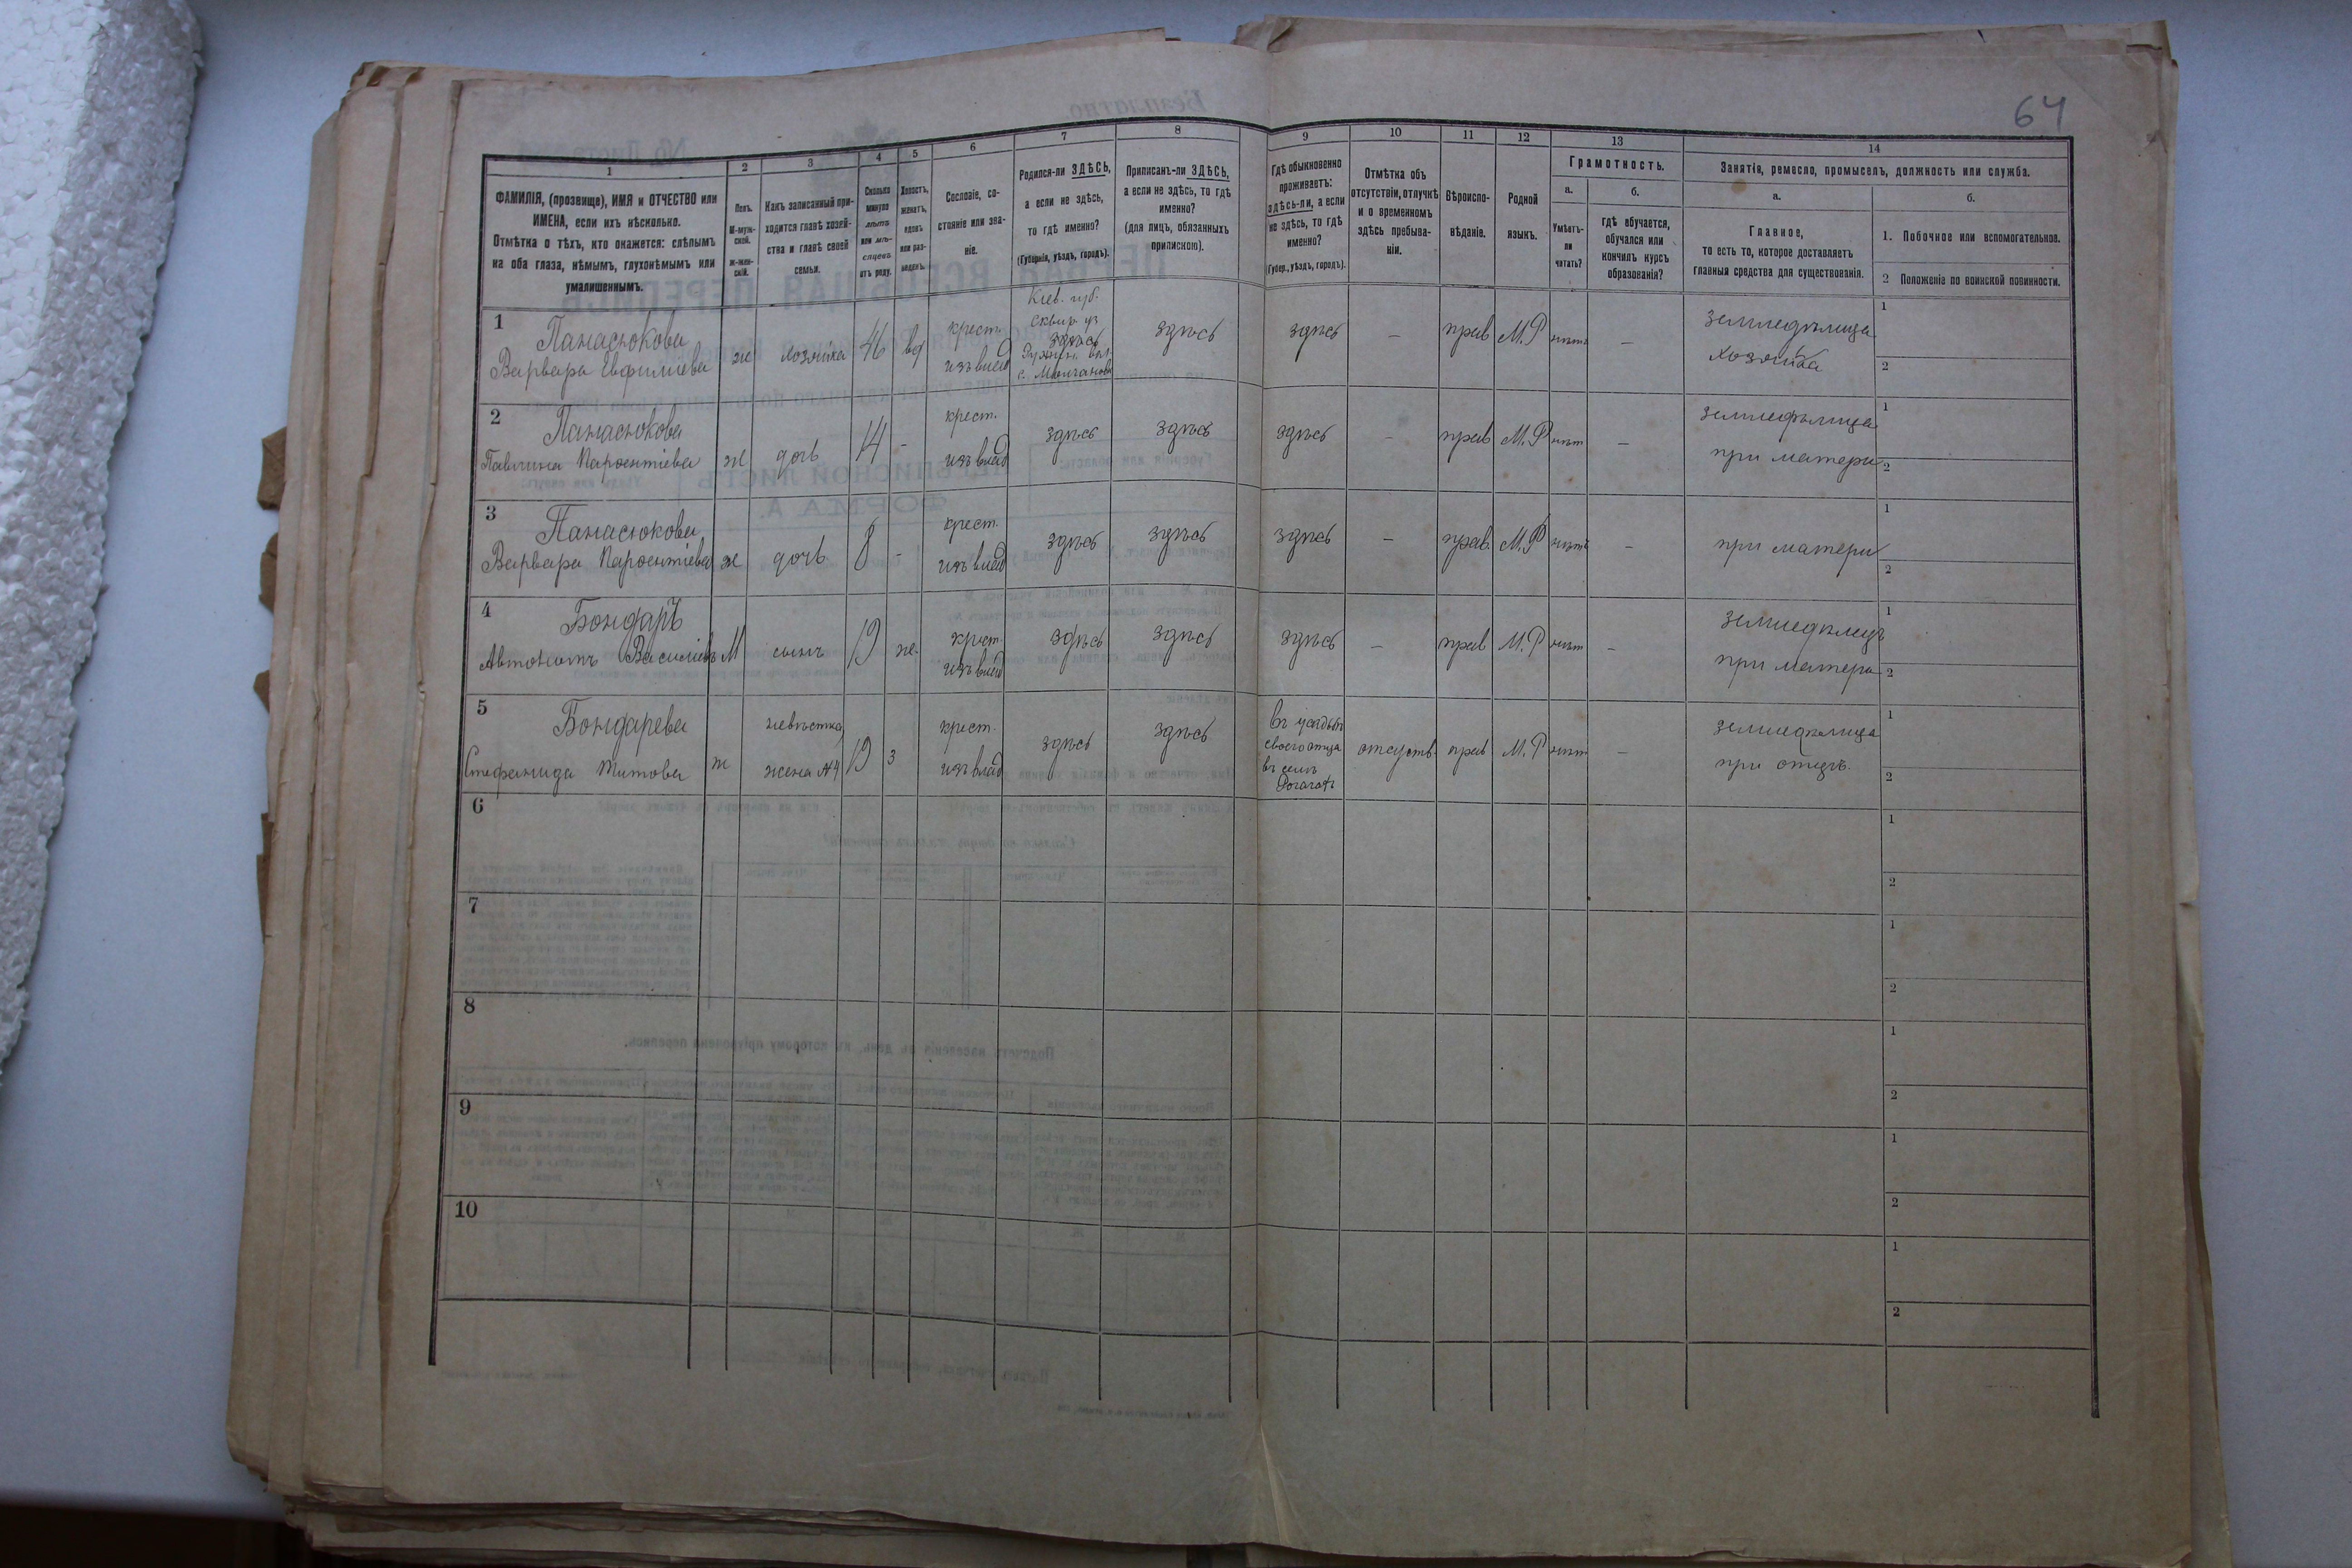 64
1
2
3
4
5
6
7
8
9
10
11
12
13
14
ФАМИЛІЯ, (прозвище), ИМЯ и ОТЧЕСТВО или
ИМЕНА, если ихъ нѣсколько.
Отмѣтка о тѣхъ, кто окажется: слѣпымъ
на оба глаза, нѣмымъ, глухонѣмымъ или
умалишеннымъ.
Полъ.
М-муж-
ской.
Ж-жен-
скій.
Какъ записанный при-
ходится главѣ хозяй-
ства и главѣ своей
семьи.
Сколько
минуло
лѣтъ
или мѣ-
сяцевъ
отъ роду.
Холостъ,
женатъ,
вдовъ
или раз-
веденъ.
Сословіе, со-
стояніе или зва-
ніе.
Родился-ли ЗДѢСЬ,
а если не здѣсь,
то гдѣ именно?
(Губернія, уѣздъ, городъ).
Приписанъ-ли ЗДѢСЬ,
а если не здѣсь, то гдѣ
именно?
(для лицъ, обязанныхъ
припискою).
Гдѣ обыкновенно
проживаетъ:
здѣсь-ли, а если
не здѣсь, то гдѣ
именно?
(Губер., уѣздъ, городъ).
Отмѣтка объ
отсутствіи, отлучкѣ
и о временномъ
здѣсь пребыва-
ніи.
Вѣроиспо-
вѣданіе.
Родной
языкъ.
Грамотность.
а.
Умѣетъ-
ли
читать?
б.
гдѣ обучается,
обучался или
кончилъ курсъ
образованія?
Занятія, ремесло, промыселъ, должность или служба.
а.
Главное,
то есть то, которое доставляетъ
главныя средства для существованія.
б.
1. Побочное или вспомогательное.
2 Положеніе по воинской повинности.
1
Панасюкова
Варвара Евфиміева
ж
хозяйка
46
вд
крест.
изъ влад
Кіев. губ.
Сквир. уз
здѣсь
с. Молчановк
здѣсь
здѣсь
–
прав
М.Р
нѣтъ
–
земледѣлица
хозяйка
1
2
2
Панасюкова
Павлина Парѳентіева
ж
дочь
14
-
крест.
изъ влад
здѣсь
здѣсь
здѣсь
–
прав
М.Р
нѣт
–
земледѣлица
при матери
1
2
3
Панасюкова
Варвара Парѳентіева
ж
дочь
8
-
крест.
изъ влад
здѣсь
здѣсь
здѣсь
–
прав.
М.Р
нѣтъ
–
при матери
1
2
4
Бондаръ
Автономъ Васильевъ
М
сынъ
19
ж.
крест.
изъ влад
здѣсь
здѣсь
здѣсь
–
прав
М.Р
нѣт
–
земледѣлецъ
при матери
1
2
5
Бондарева
Стефанида Титова
ж
невѣстка
жена №4
19
з
крест.
изъ влад
здѣсь
здѣсь
въ усадьбѣ
своего отца
въ селѣ
отсутств.
прав
М.Р
нѣт
–
земледѣлица
при отцѣ.
1
2
6
1
2
7
1
2
8
1
2
9
1
2
10
1
2